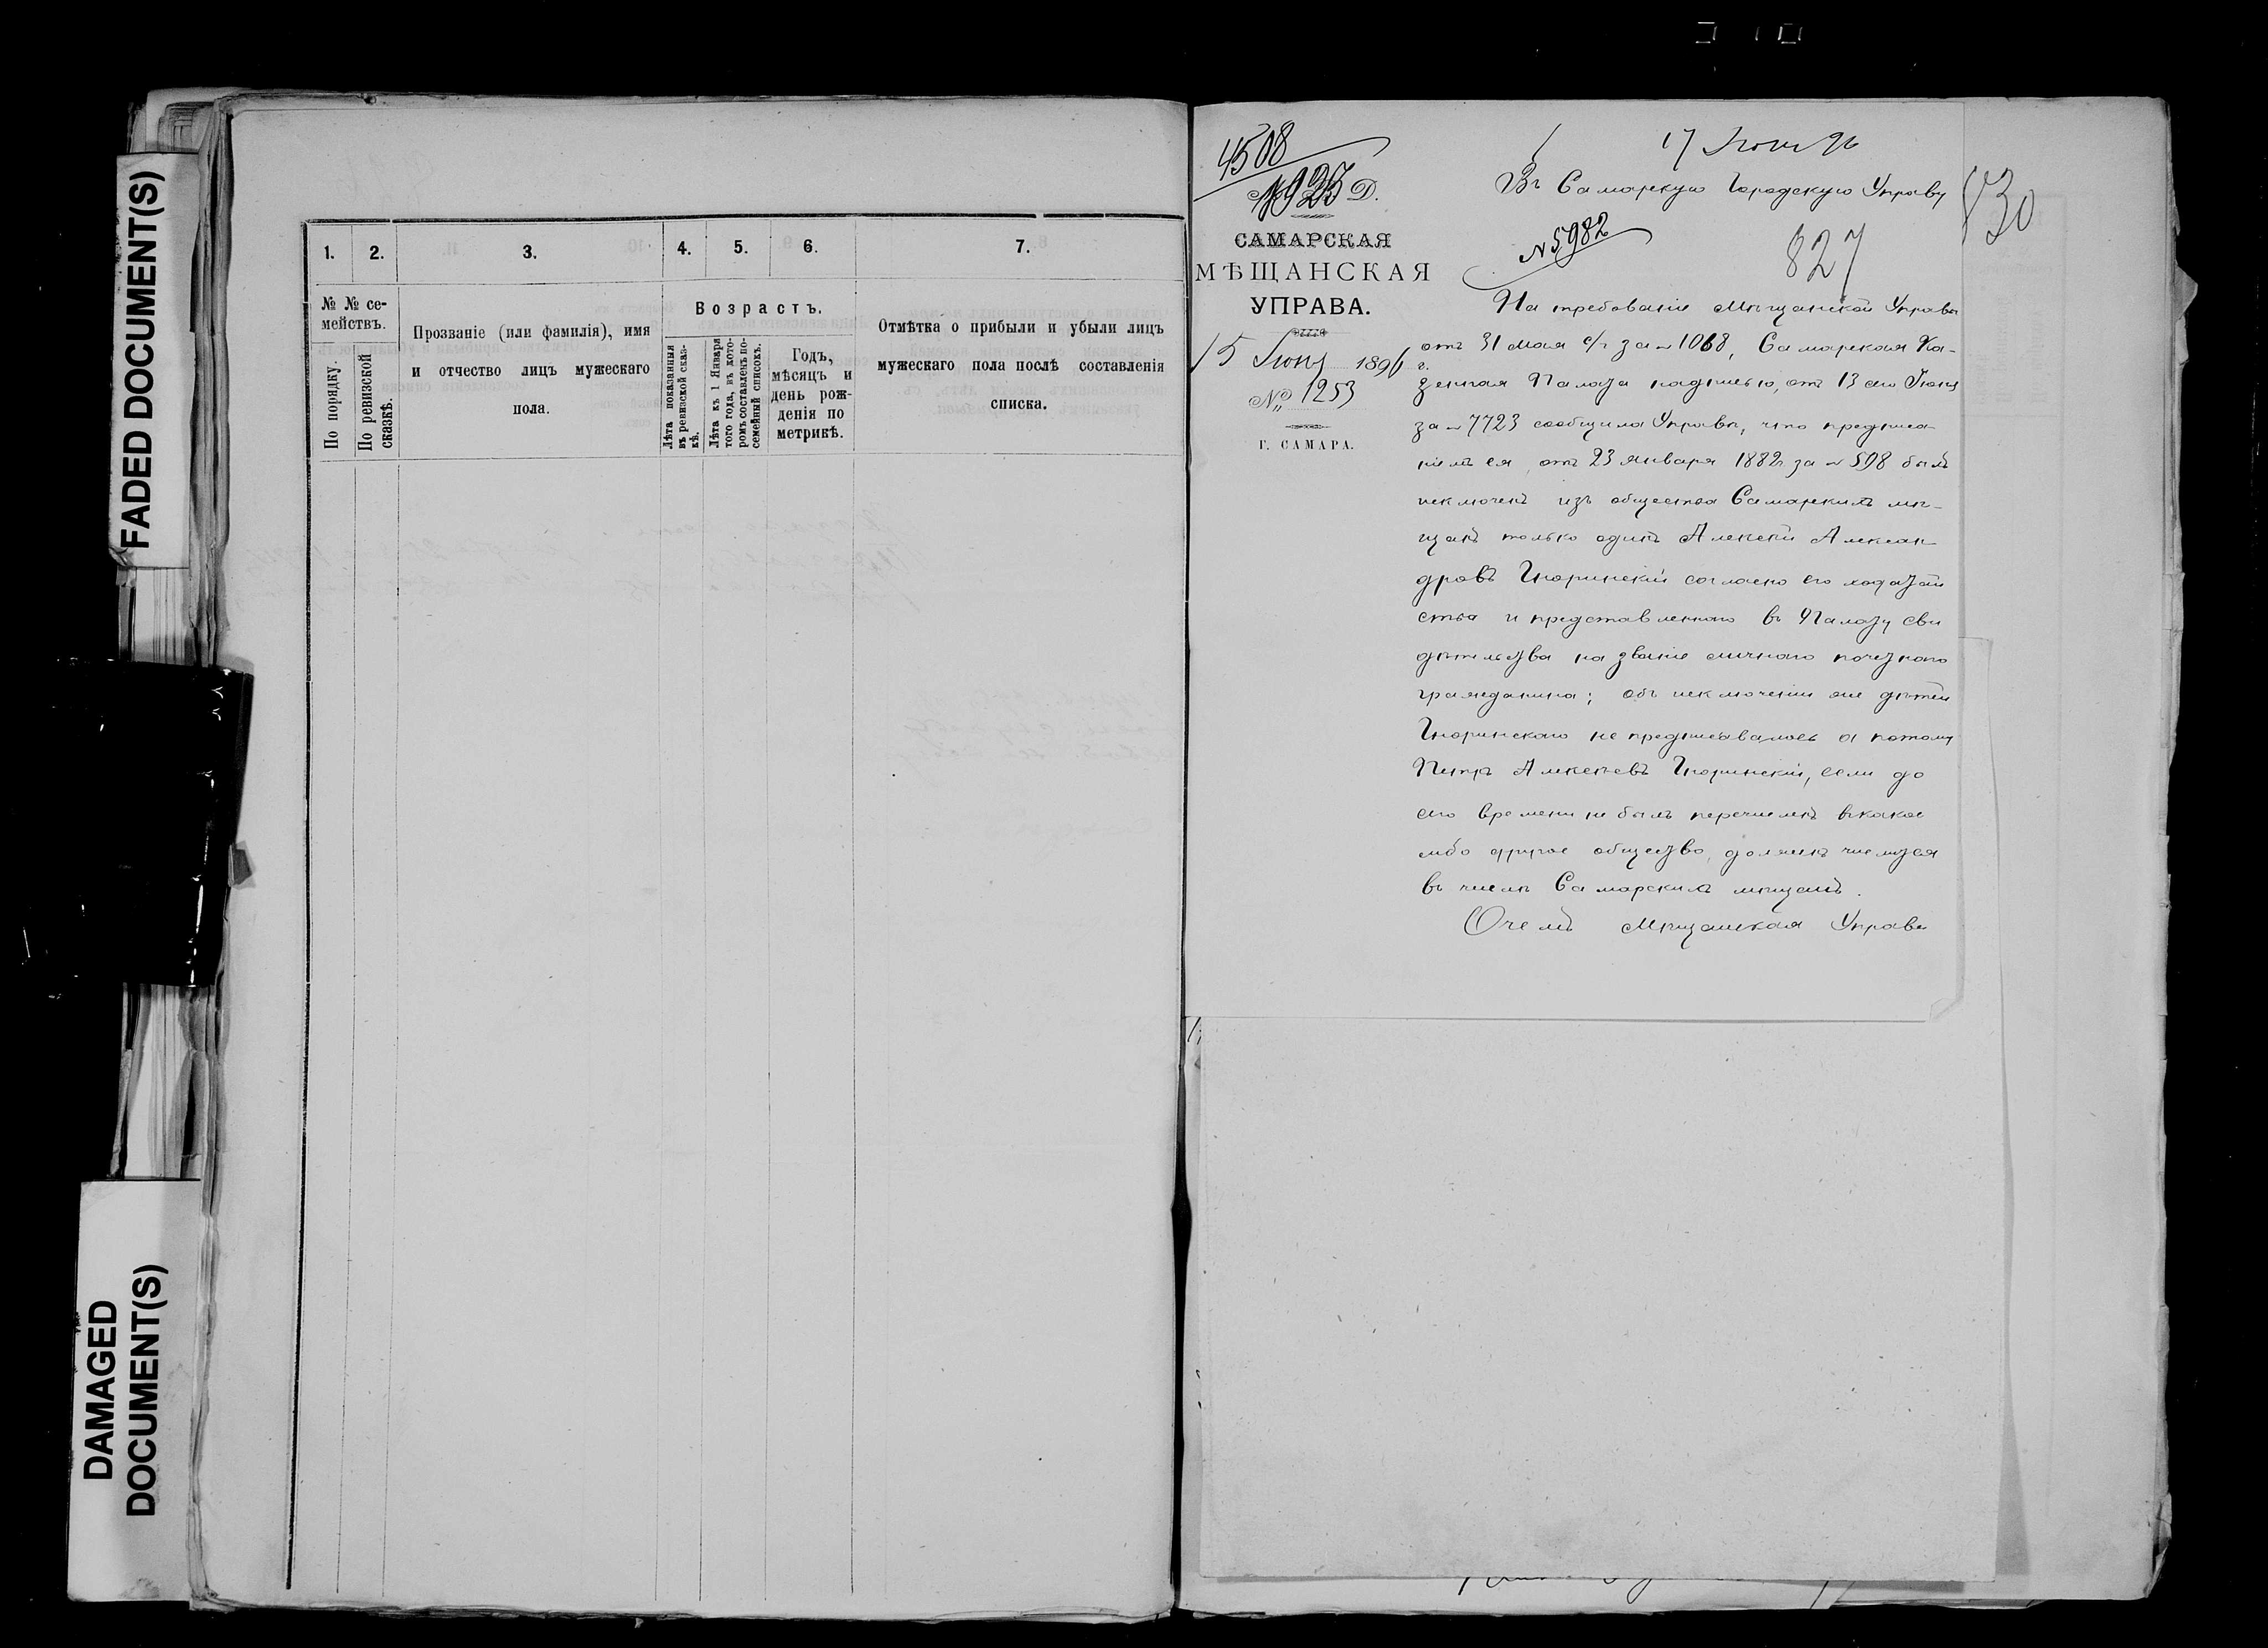 FADED DOCUMENT(S)
DAMAGED
DOCUMENT(S)
1.
2.
3.
4.
5.
6.
7.
№ № се-
мействъ.
По порядку.
По ревизской
сказкѣ.
Прозваніе (или фамилія), имя
и отчество лицъ мужескаго
пола.
Возрастъ.
Лѣта показанныя
въ ревизской сказ-
кѣ.
Лѣта къ 1 Января
того года, въ кото-
ромъ составленъ по-
семейный списокъ.
Годъ,
мѣсяцъ и
день рож-
денія по
метрикѣ.
Отмѣтка о прибыли и убыли лицъ
мужескаго пола послѣ составленія
списка.
4508
Д.
САМАРСКАЯ
МѢЩАНСКАЯ
УПРАВА.
15 Іюня 1896 г.
№ 1253
Г. САМАРА.
17 Іюня 96
Въ Самарскую Городскую Управу
830
№ 5982
827
На требованіе Мѣщанской Управы
отъ 31 Мая с/г за № 1068, Самарская Ка-
зенная Палата надписью, отъ 13 сего Іюня
за № 7723 сообщила Управѣ, что предписа-
ніемъ ея, отъ 23 Января 1882 г за № 598 былъ
исключенъ изъ общества Самарскихъ мѣ-
щанъ только одинъ Алексѣй Алексан-
дровъ Гнюринскій согласно его ходатай
ства и представленнаго въ Палату сви
дѣтельства на званіе личнаго почетнаго
гражданина; объ исключеніи же дѣтей
не предписывалось а потому
Петръ Алексѣевъ если до
сего времени не былъ перечисленъ въ какое
либо другое общество, долженъ числится
въ числѣ Самарскихъ мѣщанъ.
О чемъ Мѣщанская Управа